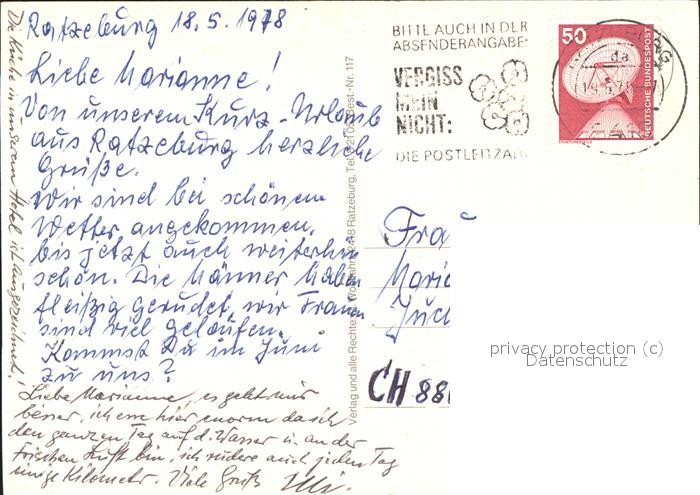 Ratzeburg 18.5.1978
Liebe Marianne!
Von unserem Kurz-Urlaub
aus Ratzeburg herzliche
Grüße.
Wir sind bei schönem
Wetter angekommen,
bis jetzt auch weiterhin
schön. Die Männer haben
fleißig gerudet, wir Frauen
sind viel gelaufen.
Kommst Du im Juni
zu uns?
Liebe Marianne, es geht mir
besser, ich esse hier enorm da ich
den ganzen Tag auf d. Wasser u. an der
frischen Luft bin, ich rudere auch jeden Tag
einige Kilometer. Viele Grüße Uli.
Die Küche in unserem Hotel ist ausgezeichnet!
Verlag und alle Rechte: 2418 Ratzeburg, Tel. Best.-Nr. 117
BITTE AUCH IN DER
ABSENDERANGABE:
VERGISS
MEIN
NICHT:
DIE POSTLEITZAHL
50
DEUTSCHE BUNDESPOST
da
Frau
Maria
CH 88
privacy protection (c)
Datenschutz